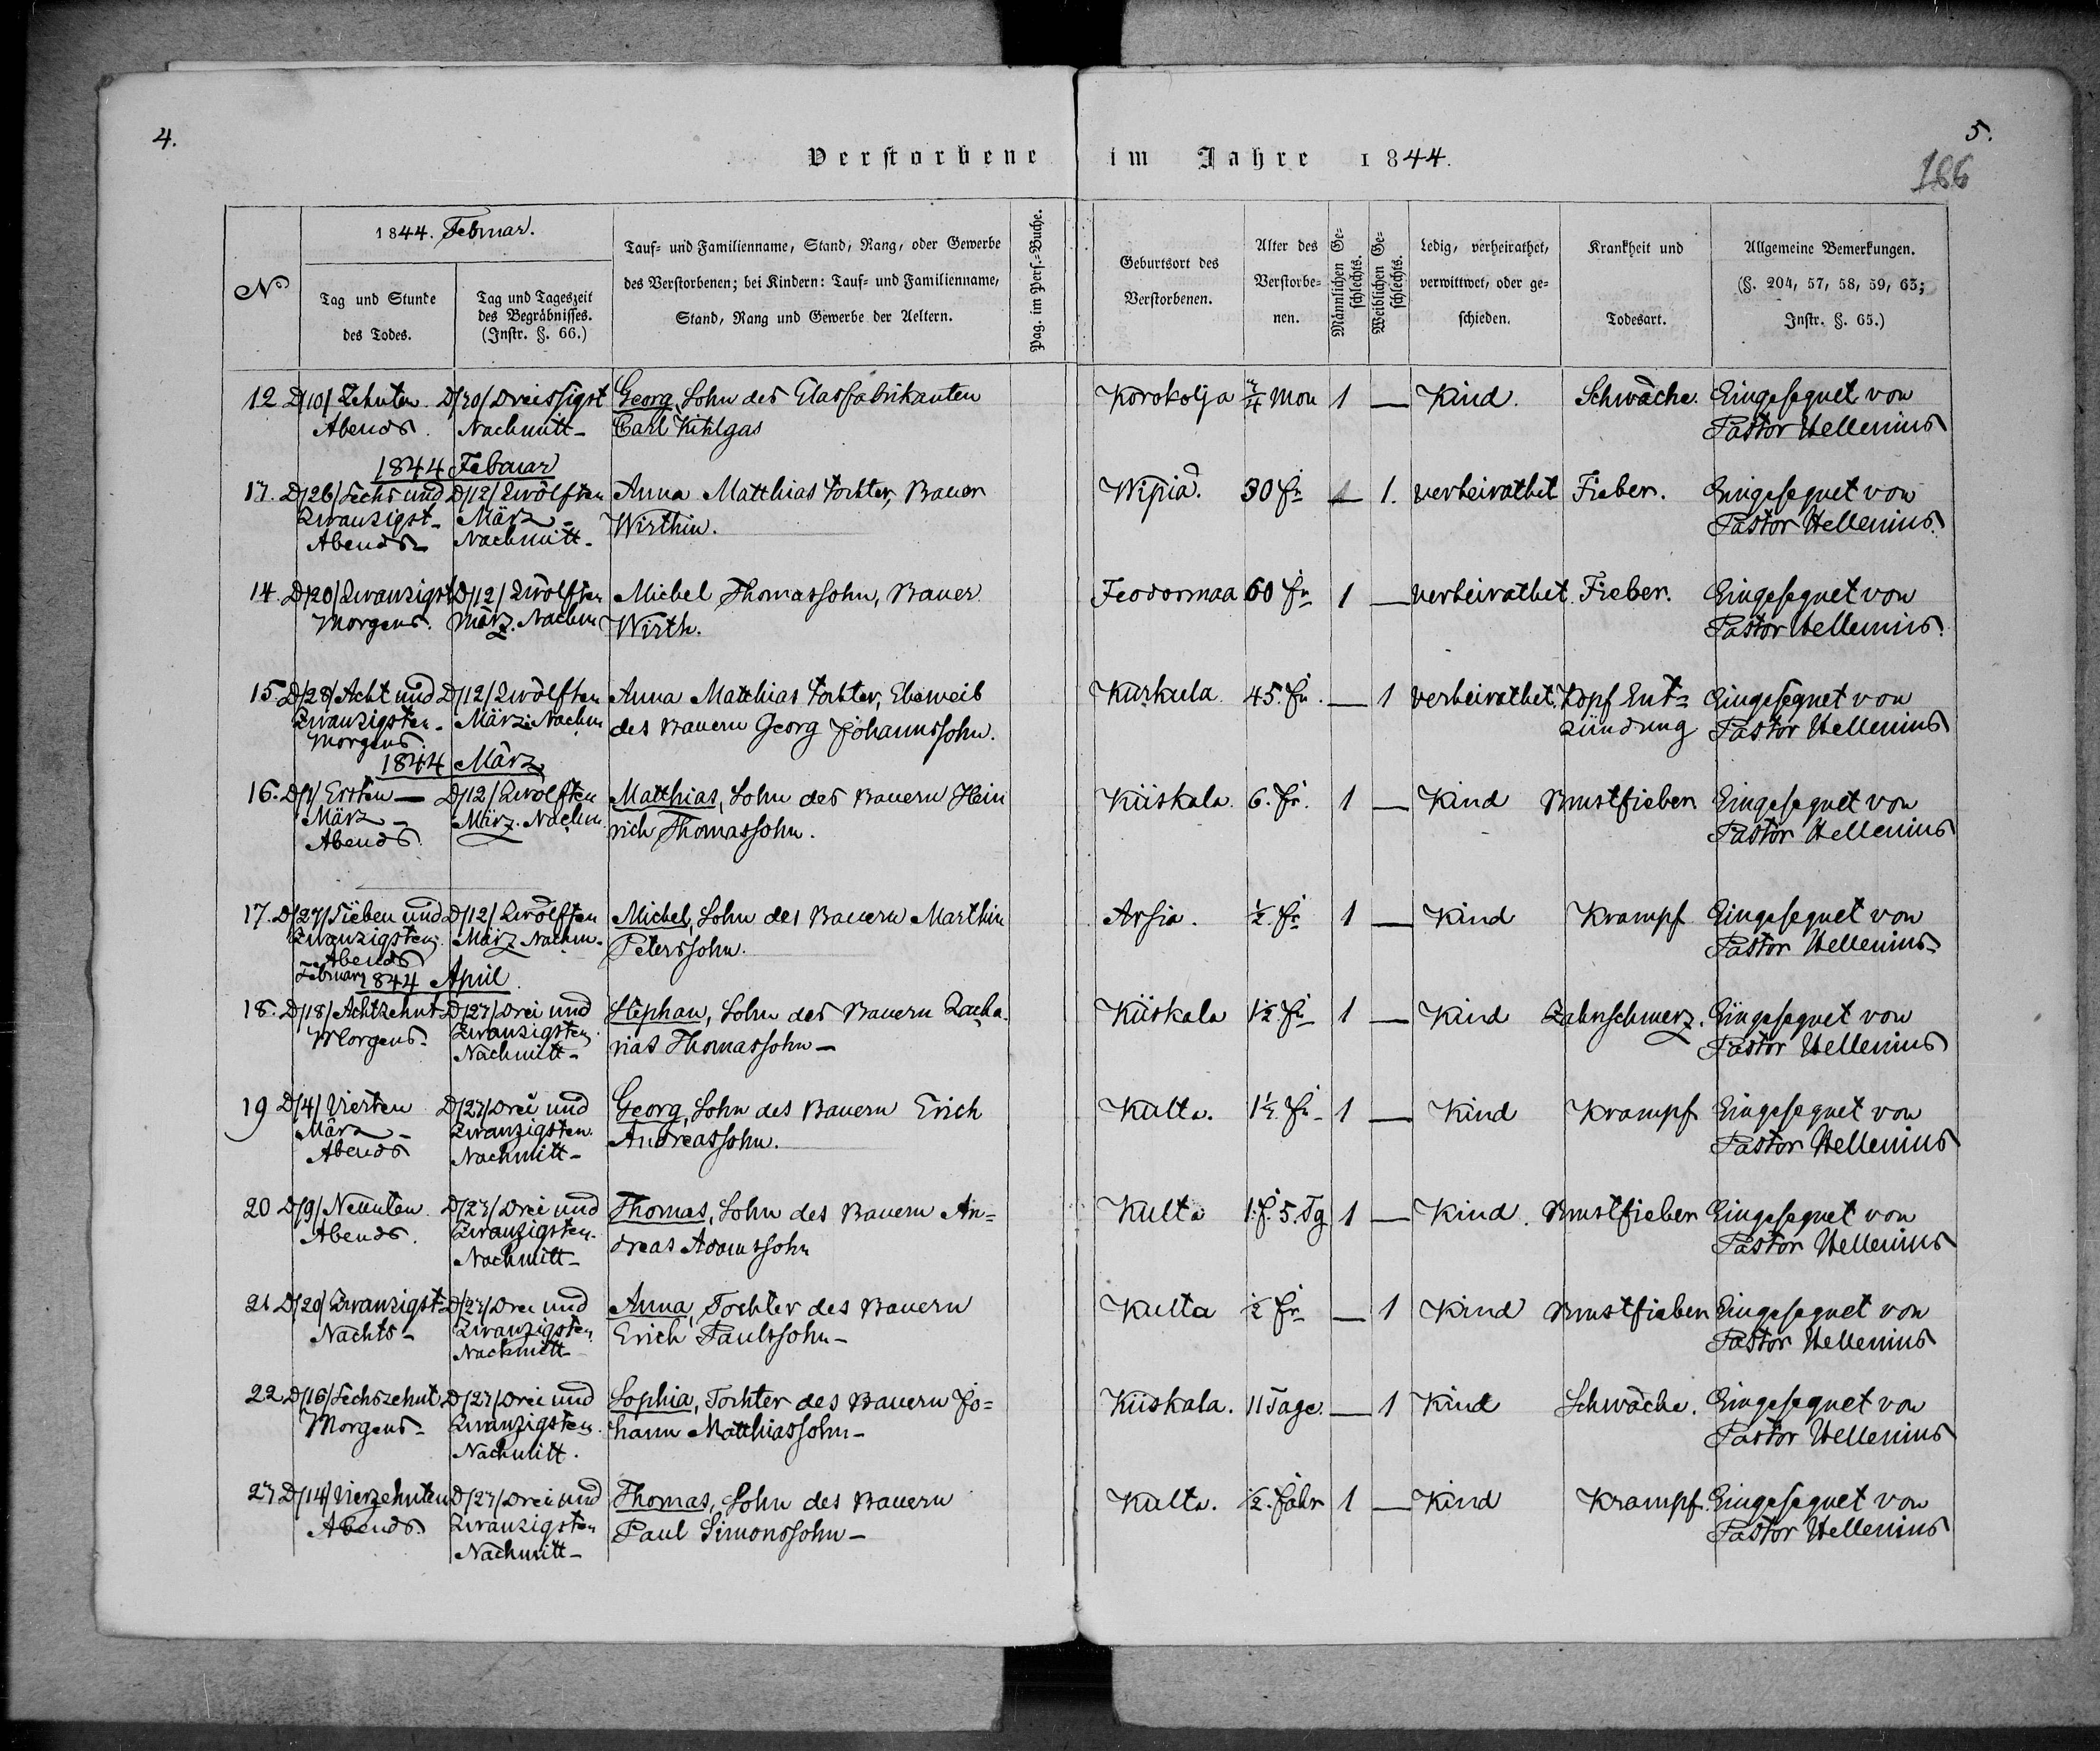 4.
5.
166
Verstorbene im Jahre 1844.
No
1844. Februar.
Tag und Stunde
des Todes.
Tag und Tageszeit
des Begräbnisses.
(Instr. §. 66.)
Tauf- und Familienname, Stand, Rang, oder Gewerbe
des Verstorbenen; bei Kindern: Tauf- und Familienname,
Stand, Rang und Gewerbe der Aeltern.
Pag. im Pers.-Buche.
Geburtsort des
Verstorbenen.
Alter des
Verstorbe-
nen.
Männlichen Ge-
schlechts.
Weiblichen Ge-
schlechts.
Ledig, verheirathet,
verwittwet, oder ge-
schieden.
Krankheit und
Todesart.
Allgemeine Bemerkungen.
(§. 204, 57, 58, 59, 63;
Instr. §. 65.)
12 D/10/ Zehnten D/30/ Dreissigst Georg, Sohn des Glasfabrikanten Korokolja ¾ Mon 1 — Kind. Schwäche. Eingesegnet von
Abends. Nachmitt- Carl Pastor Hellenius
1844 Februar
13. D/26/ Sechs und D/12/ Zwölften Anna Matthias Tochter, Bauer Wipia. 30 Jr — 1. verheirathet Fieber. Eingesegnet von
Zwanzigst- März- Wirthin. Pastor Hellenius.
Abends- Nachmitt-
14. D/20/ Zwanzigst D/12/ Zwölften Michel Thomassohn, Bauer Feodormaa 60 Jr 1 — verheirathet. Fieber. Eingesegnet von
Morgens. März. Nachm Wirth. Pastor Hellenius.
15. D/28/ Acht und D/12/ Zwölften Anna Matthias Tochter, Eheweib Kurkula 45. Jr. — 1 verheirathet. Kopf Ent= Eingesegnet von
Zwanzigsten- März. Nachm des Bauern Georg Johannssohn. zündung Pastor Hellenius
Morgens.
1844 März
16. D/1/ Ersten — D/12/ Zwölften Matthias, Sohn des Bauern Hein Kiiskala. 6. Jr. 1 — Kind Brustfieber Eingesegnet von
März- März. Nachm rich Thomassohn. Pastor Hellenius
Abends.
17. D/27/ Sieben und D/12/ Zwölften Michel, Sohn des Bauern Marthin Arsia. ½. Jr 1 — Kind Krampf Eingesegnet von
Zwanzigsten. März Nachm. Peterssohn. Pastor Hellenius-
Abends
Februar
1844 April
18. D/18/ Achtzehnt D/23/ Drei und Stephan, Sohn des Bauern Zacha- Kiiskala 1½. Jr 1 — Kind Zahnschmerz. Eingesegnet von
Morgens- Zwanzigsten rias Thomassohn — Pastor Hellenius
Nachmitt-
19 D/4/ Vierten D/23/ Drei und Georg, Sohn des Bauern Erich Kulta. Jr- 1 — Kind Krampf Eingesegnet von
März- Zwanzigsten Andreassohn. Pastor Hellenius
Abends Nachmitt-
20 D/9/ Neunten D/23/ Drei und Thomas, Sohn des Bauern An= Kulta 1. J. 5. Tg 1 — Kind. Brustfieber Eingesegnet von
Abends. Zwanzigsten. dreas Adamssohn Pastor Hellenius
Nachmitt-
21 D/20/ Zwanzigst- D/23/ Drei und Anna, Tochter des Bauern Kulta ½ Jr — 1 Kind Brustfieber Eingesegnet von
Nachts- Zwanzigsten Erich Paulssohn- Pastor Hellenius
Nachmitt-
22 D/16/ Sechszehnt D/23/ Drei und Sophia, Tochter des Bauern Jo= Kiiskala. 11 Tage. — 1 Kind Schwäche. Eingesegnet von
Morgens- Zwanzigsten. hann Matthiassohn- Pastor Hellenius
Nachmitt.
23 D/14/ Vierzehnten D/23/ Drei und Thomas, Sohn des Bauern Kulta. ½. Jahr 1 — Kind Krampf. Eingesegnet von
Abends. Zwanzigsten Paul Simonssohn- Pastor Hellenius
Nachmitt-